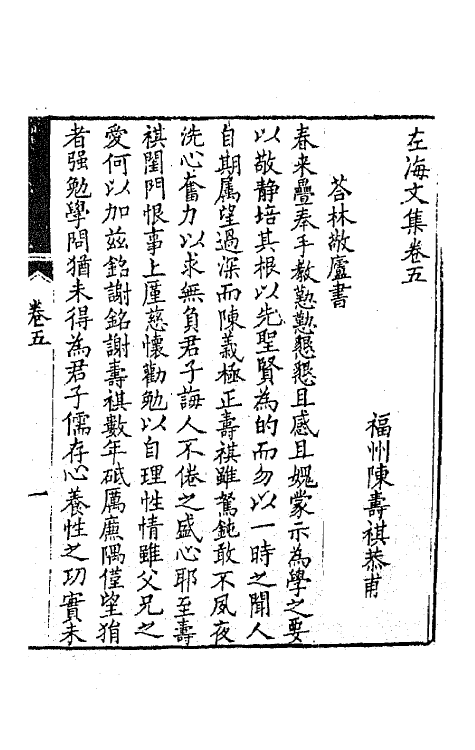 左海文集卷五
福州陳壽祺恭甫
荅林敬廬書
春来疊奉手教懃懃懇懇且感且媿蒙示為學之要
以敬静培其根以先聖賢為的而勿以一時之聞人
自期属望過深而陳義極正壽祺雖駑鈍敢不夙夜
洗心奮力以求無負君子誨人不倦之盛心耶至壽
祺閨門恨事上厪慈懷勸勉以自理性情雖父兄之
愛何以加兹銘謝銘謝壽祺數年砥厲廉隅僅望狷
者强勉學問猶未得為君子儒存心養性之功實未
卷五
一